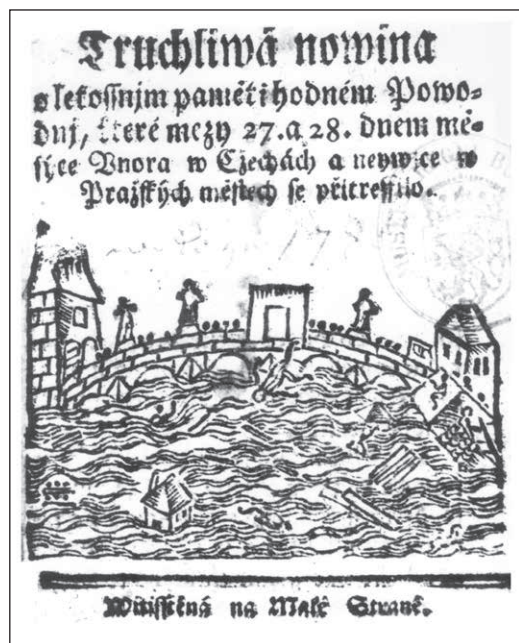 Truchliwá nowina
o letossnjm paměti hodném Powo=
dnj, které mezy 27. a 28. dnem mě=
syce Vnora w Czechách a neywjce w
Pražských městech se přitrefilo.
Witisstěná na Malé Straně.